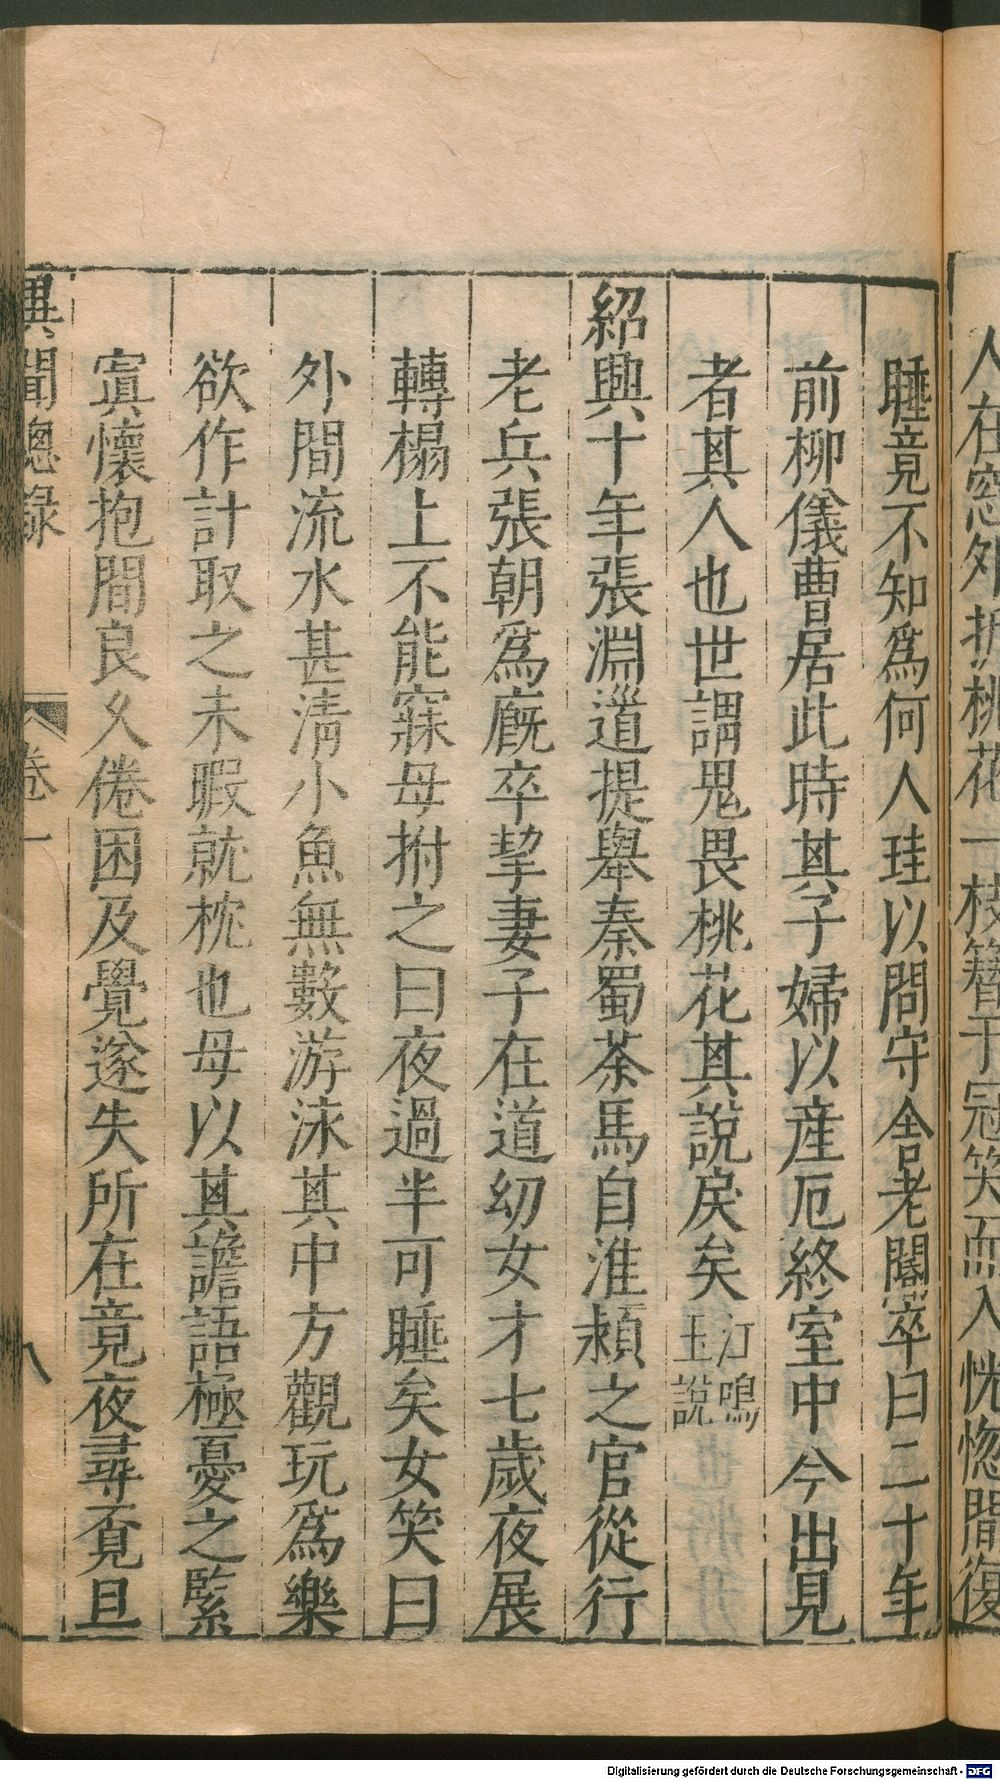 人在窓外折桃花一枝簪于冠笑而入恍惚間復
睡竟不知爲何人珪以問守舍老闍卒曰二十年
前柳儀曹居此時其子婦以産厄終室中今出見
者其人也世謂鬼畏桃花其說戾矣江鳴
玉說
紹興十年張淵道提舉秦蜀茶馬自淮頴之官從行
老兵張朝爲廐卒挈妻子在道幼女才七歲夜展
轉榻上不能寐母拊之曰夜過半可睡矣女笑曰
外間流水甚淸小魚無數游泳其中方觀玩爲樂
欲作計取之未暇就枕也母以其譫語極憂之緊
寘懷抱間良久倦困及覺遂失所在竟夜尋覔旦
異聞總錄
卷一
八
Digitalisierung gefördert durch die Deutsche Forschungsgemeinschaft - DFG